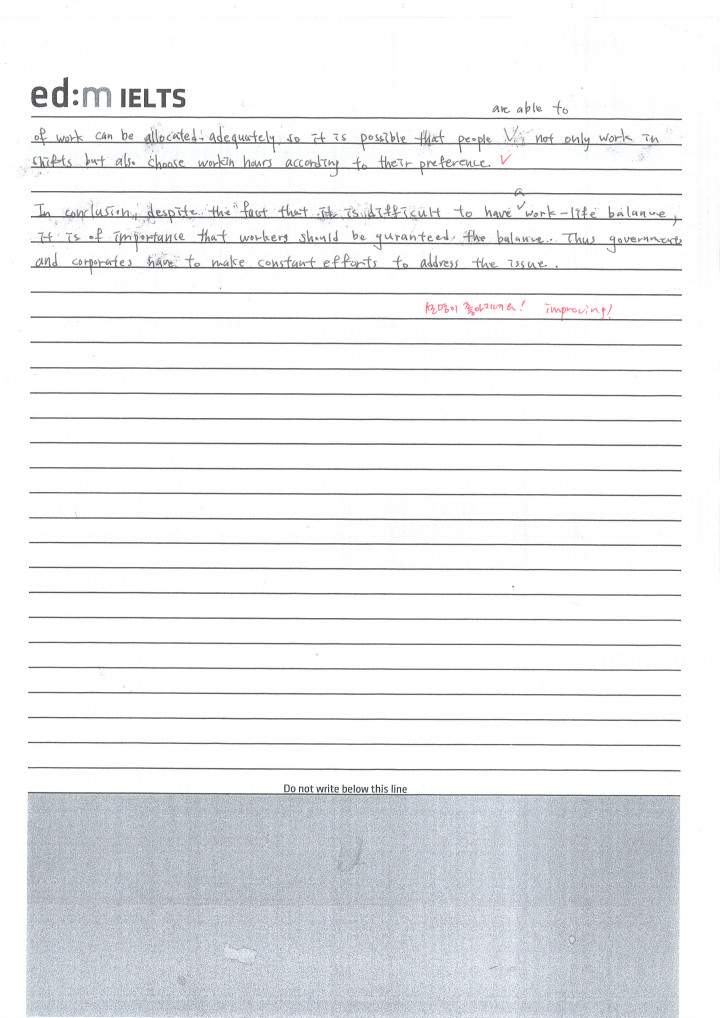 ed:m IELTS
are able to
of work can be allocated adequately so it is possible that people V not only work in
shifts but also choose workin hours according to their preference. V
a
In conclusion, despite the fact that it is difficult to have work-life balance,
it is of importance that workers should be guranteed the balance. Thus governments
and corporates have to make constant efforts to address the issue.
설명이 좋아지네요! improving!
Do not write below this line